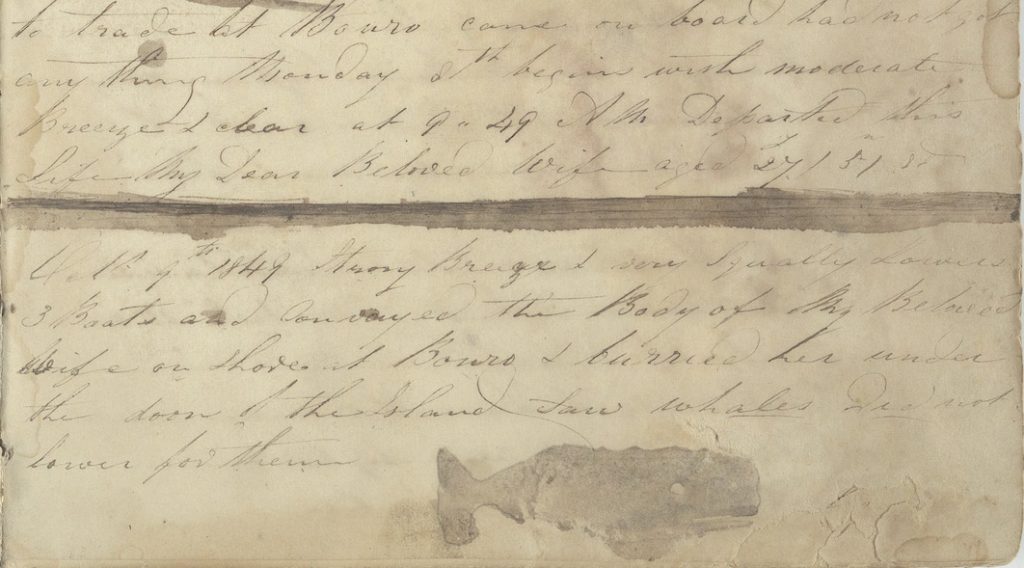 to trade at Bouro came on board had not got
any thing Monday 8th begins with moderate
Breeze & clear at 9 " 49 AM Departed this
Life My Dear Beloved Wife aged 27
Oct 9th 1849 Strong Breeze & very Squally Lowered
3 Boats and Convayed the Body of My Beloved
Wife on Shore at Bouro & burried her under
the door of the Island Saw whales Did not
lower for them